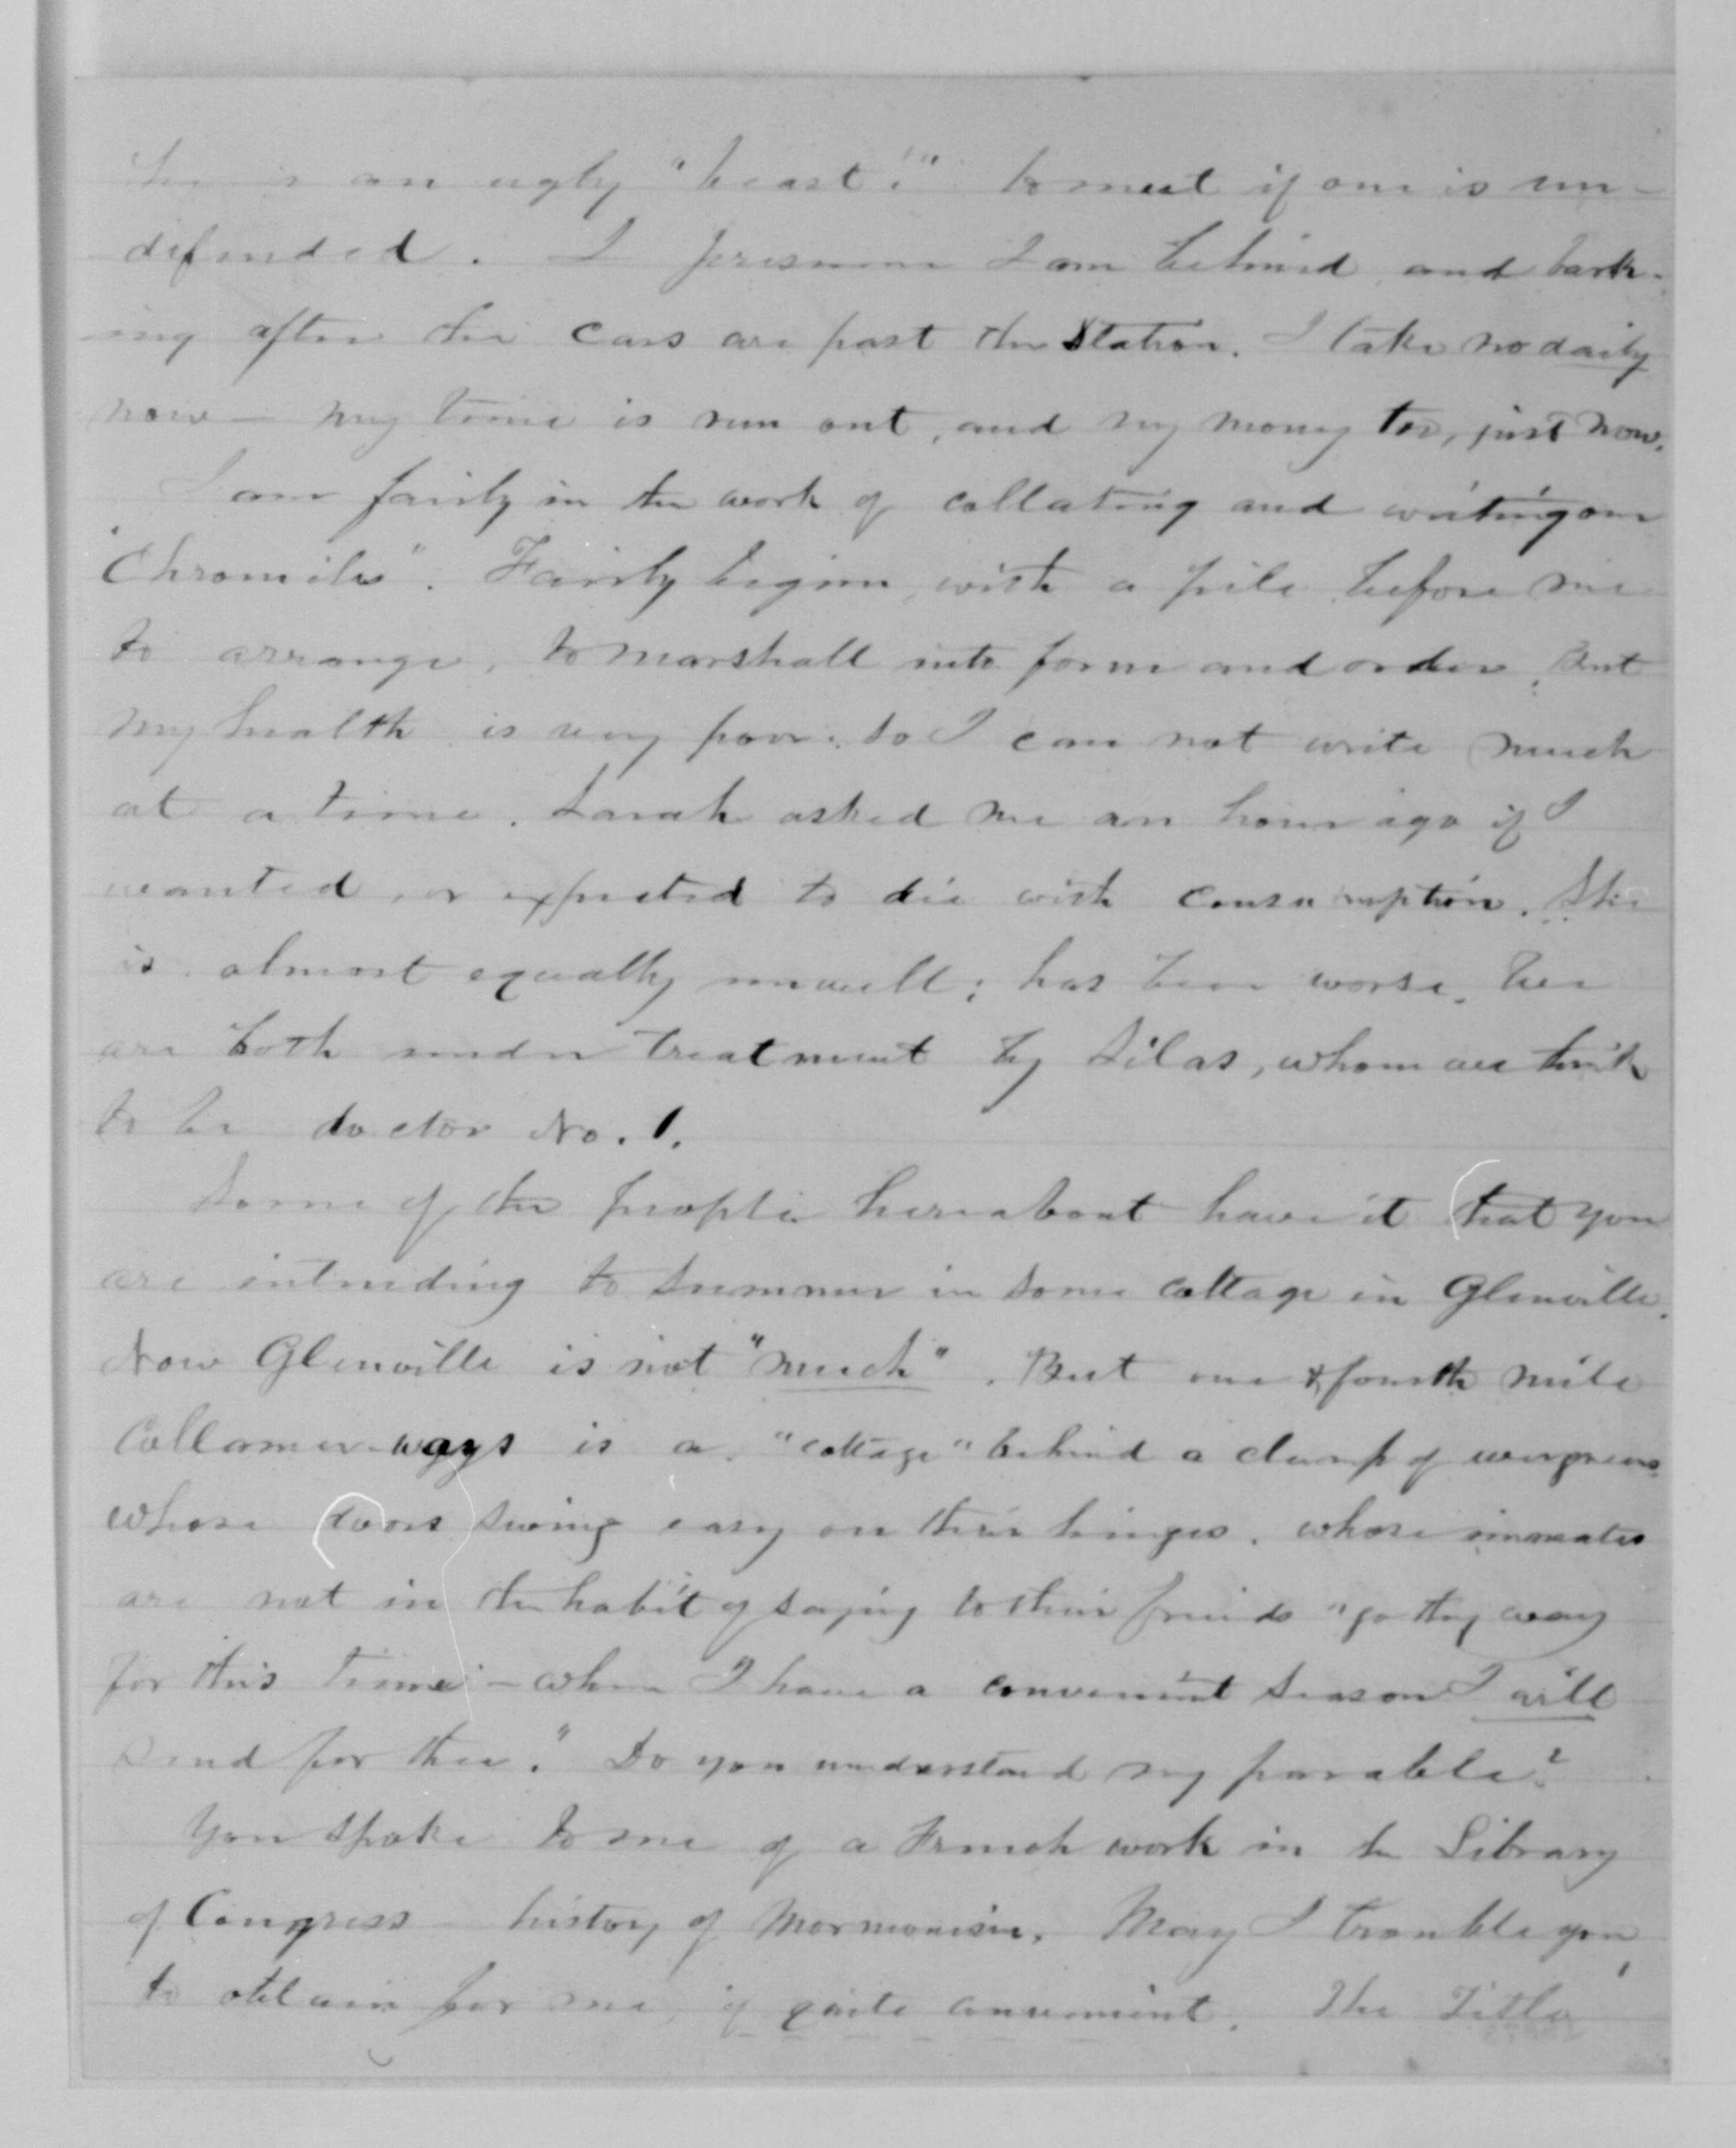 is an ugly "beast!" to meet if one is un-
defended. I presume I am behind and bark-
ing after the cars are past the station. I take no daily
now — my time is run out, and my money too, just now.
I am fairly in the work of collating and writing our
"Chronicles". Fairly begun, with a pile before me
to arrange, to marshall into form and order. But
my health is very poor: so I can not write much
at a time. Sarah asked me an hour ago if I
wanted, or expected to die with consumption. She
is almost equally unwell; has been worse. We
are both under treatment by Silas, whom we think
to be doctor No. 1.
Some of the people hereabout have it that you
are intending to summer in some cottage in Glenville.
Now Glenville is not "much". But one & fourth mile
Collamer-ways is a "cottage" behind a clump of evergreens
whose doors swing easy on their hinges. whose inmates
are not in the habit of saying to their friends "go thy way
for this time — when I have a convenient season I will
send for thee." Do you understand my parable?
You spoke to me of a French work in the Library
of Congress history of Mormonism. May I trouble you
to obtain for me, if quite convenient. The Title